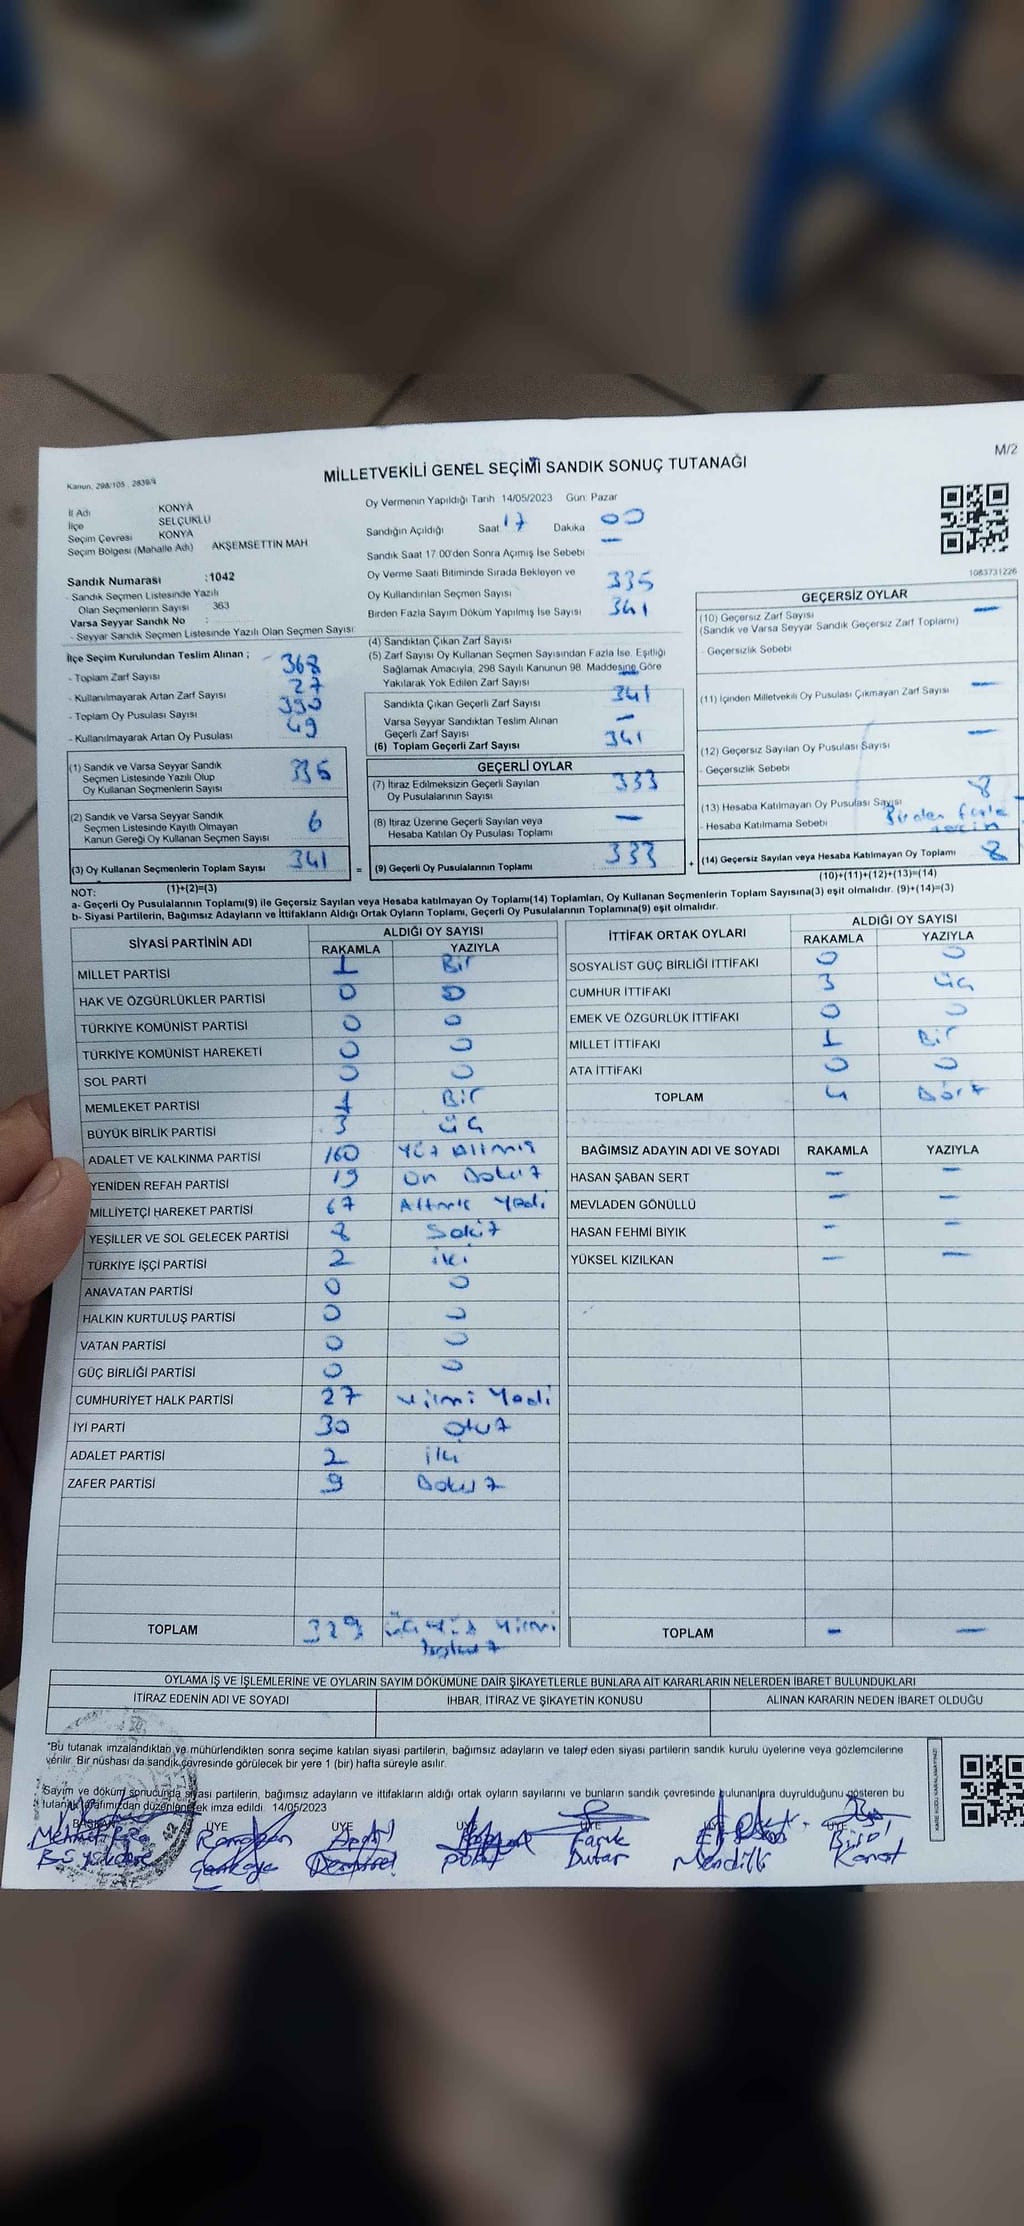 M/2
Kanun, 298/105 , 2839/4
MİLLETVEKİLİ GENEL SEÇİMİ SANDIK SONUÇ TUTANAĞI
İl Adı KONYA
İlçe SELÇUKLU
Seçim Çevresi KONYA
Seçim Bölgesi (Mahalle Adı) AKŞEMSETTİN MAH
Sandık Numarası :1042
- Sandık Seçmen Listesinde Yazılı
Olan Seçmenlerin Sayısı 363
Varsa Seyyar Sandık No :
- Seyyar Sandık Seçmen Listesinde Yazılı Olan Seçmen Sayısı:
Oy Vermenin Yapıldığı Tarih :14/05/2023 Gün: Pazar
Sandığın Açıldığı Saat 17 Dakika 00
Sandık Saat 17:00'den Sonra Açımış İse Sebebi —
Oy Verme Saati Bitiminde Sırada Bekleyen ve
Oy Kullandırılan Seçmen Sayısı 335
Birden Fazla Sayım Döküm Yapılmış İse Sayısı 341
1083731226
İlçe Seçim Kurulundan Teslim Alınan ;
- Toplam Zarf Sayısı 368
- Kullanılmayarak Artan Zarf Sayısı 27
- Toplam Oy Pusulası Sayısı 390
- Kullanılmayarak Artan Oy Pusulası 49
(1) Sandık ve Varsa Seyyar Sandık
Seçmen Listesinde Yazılı Olup
Oy Kullanan Seçmenlerin Sayısı 335
(2) Sandık ve Varsa Seyyar Sandık
Seçmen Listesinde Kayıtlı Olmayan
Kanun Gereği Oy Kullanan Seçmen Sayısı 6
(3) Oy Kullanan Seçmenlerin Toplam Sayısı 341
(1)+(2)=(3)
(4) Sandıktan Çıkan Zarf Sayısı
(5) Zarf Sayısı Oy Kullanan Seçmen Sayısından Fazla İse, Eşitliği
Sağlamak Amacıyla, 298 Sayılı Kanunun 98. Maddesine Göre
Yakılarak Yok Edilen Zarf Sayısı —
Sandıkta Çıkan Geçerli Zarf Sayısı 341
Varsa Seyyar Sandıktan Teslim Alınan
Geçerli Zarf Sayısı —
(6) Toplam Geçerli Zarf Sayısı 341
GEÇERLİ OYLAR
(7) İtiraz Edilmeksizin Geçerli Sayılan
Oy Pusulalarının Sayısı 333
(8) İtiraz Üzerine Geçerli Sayılan veya
Hesaba Katılan Oy Pusulası Toplamı —
= (9) Geçerli Oy Pusulalarının Toplamı 333
GEÇERSİZ OYLAR
(10) Geçersiz Zarf Sayısı —
(Sandık ve Varsa Seyyar Sandık Geçersiz Zarf Toplamı)
- Geçersizlik Sebebi
(11) İçinden Milletvekili Oy Pusulası Çıkmayan Zarf Sayısı —
(12) Geçersiz Sayılan Oy Pusulası Sayısı —
- Geçersizlik Sebebi
(13) Hesaba Katılmayan Oy Pusulası Sayısı 8
- Hesaba Katılmama Sebebi Birden fazla
seçim
+ (14) Geçersiz Sayılan veya Hesaba Katılmayan Oy Toplamı 8
(10)+(11)+(12)+(13)=(14)
NOT:
a- Geçerli Oy Pusulalarının Toplamı(9) ile Geçersiz Sayılan veya Hesaba katılmayan Oy Toplamı(14) Toplamları, Oy Kullanan Seçmenlerin Toplam Sayısına(3) eşit olmalıdır. (9)+(14)=(3)
b- Siyasi Partilerin, Bağımsız Adayların ve İttifakların Aldığı Ortak Oyların Toplamı, Geçerli Oy Pusulalarının Toplamına(9) eşit olmalıdır.
SİYASİ PARTİNİN ADI ALDIĞI OY SAYISI
RAKAMLA YAZIYLA
MİLLET PARTİSİ 1 Bir
HAK VE ÖZGÜRLÜKLER PARTİSİ 0 0
TÜRKİYE KOMÜNİST PARTİSİ 0 0
TÜRKİYE KOMÜNİST HAREKETİ 0 0
SOL PARTİ 0 0
MEMLEKET PARTİSİ 1 Bir
BÜYÜK BİRLİK PARTİSİ 3 üç
ADALET VE KALKINMA PARTİSİ 160 Yüz Altmış
YENİDEN REFAH PARTİSİ 19 On Dokuz
MİLLİYETÇİ HAREKET PARTİSİ 67 Altmış Yedi
YEŞİLLER VE SOL GELECEK PARTİSİ 8 Sekiz
TÜRKİYE İŞÇİ PARTİSİ 2 iki
ANAVATAN PARTİSİ 0 0
HALKIN KURTULUŞ PARTİSİ 0 0
VATAN PARTİSİ 0 0
GÜÇ BİRLİĞİ PARTİSİ 0 0
CUMHURİYET HALK PARTİSİ 27 Yirmi Yedi
İYİ PARTİ 30 Otuz
ADALET PARTİSİ 2 iki
ZAFER PARTİSİ 9 Dokuz
TOPLAM 329 üçyüz Yirmi
dokuz
İTTİFAK ORTAK OYLARI ALDIĞI OY SAYISI
RAKAMLA YAZIYLA
SOSYALİST GÜÇ BİRLİĞİ İTTİFAKI 0 0
CUMHUR İTTİFAKI 3 üç
EMEK VE ÖZGÜRLÜK İTTİFAKI 0 0
MİLLET İTTİFAKI 1 Bir
ATA İTTİFAKI 0 0
TOPLAM 4 Dört
BAĞIMSIZ ADAYIN ADI VE SOYADI RAKAMLA YAZIYLA
HASAN ŞABAN SERT — —
MEVLADEN GÖNÜLLÜ — —
HASAN FEHMİ BIYIK — —
YÜKSEL KIZILKAN — —
TOPLAM — —
OYLAMA İŞ VE İŞLEMLERİNE VE OYLARIN SAYIM DÖKÜMÜNE DAİR ŞİKAYETLERLE BUNLARA AİT KARARLARIN NELERDEN İBARET BULUNDUKLARI
İTİRAZ EDENİN ADI VE SOYADI İHBAR, İTİRAZ VE ŞİKAYETİN KONUSU ALINAN KARARIN NEDEN İBARET OLDUĞU
*Bu tutanak imzalandıktan ve mühürlendikten sonra seçime katılan siyasi partilerin, bağımsız adayların ve talep eden siyasi partilerin sandık kurulu üyelerine veya gözlemcilerine
verilir. Bir nüshası da sandık çevresinde görülecek bir yere 1 (bir) hafta süreyle asılır.
Sayım ve döküm sonucunda siyasi partilerin, bağımsız adayların ve ittifakların aldığı ortak oyların sayılarını ve bunların sandık çevresinde bulunanlara duyrulduğunu gösteren bu
tutanak tarafımızdan düzenlenerek imza edildi. 14/05/2023
BAŞKAN ÜYE ÜYE ÜYE ÜYE ÜYE
Mehmet Ramazan Faruk Birol
Demirel Polat Dutar Mendilli Kanat